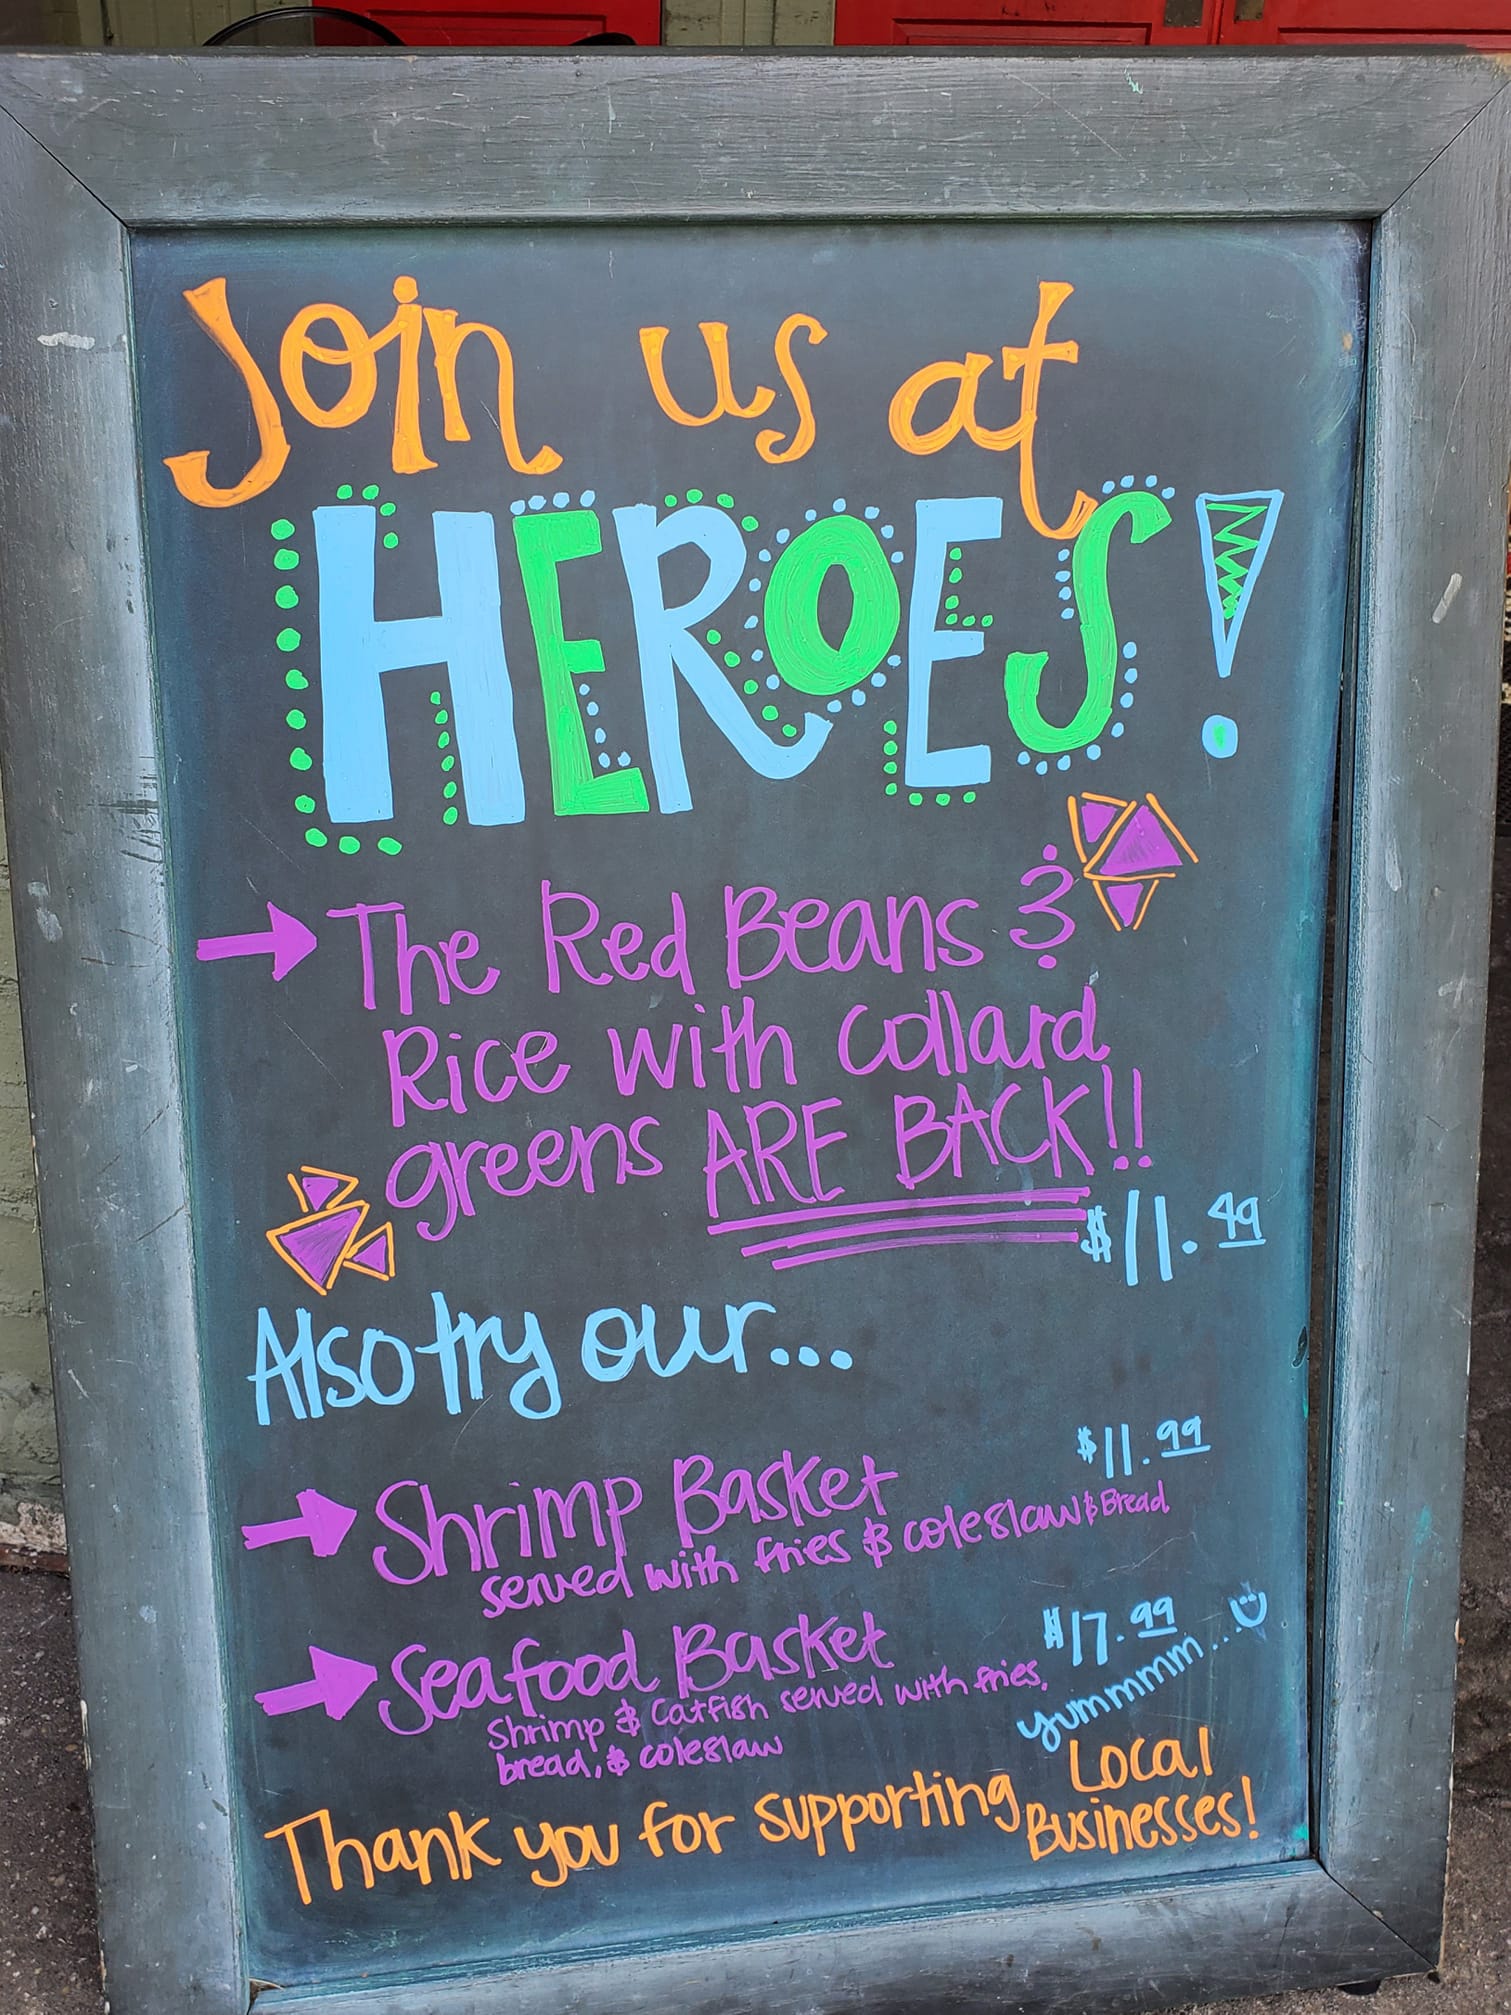 Join us at
HEROES!
The Red Beans &
Rice with Collard
greens ARE BACK!!
$11.49
Also try our...
$11.99
Shrimp Basket
served with fries & coleslaw & Bread
Seafood Basket
$17.99
Shrimp & Catfish served with fries,
bread, & coleslaw
yummmm...
Thank you for supporting Local
Businesses!